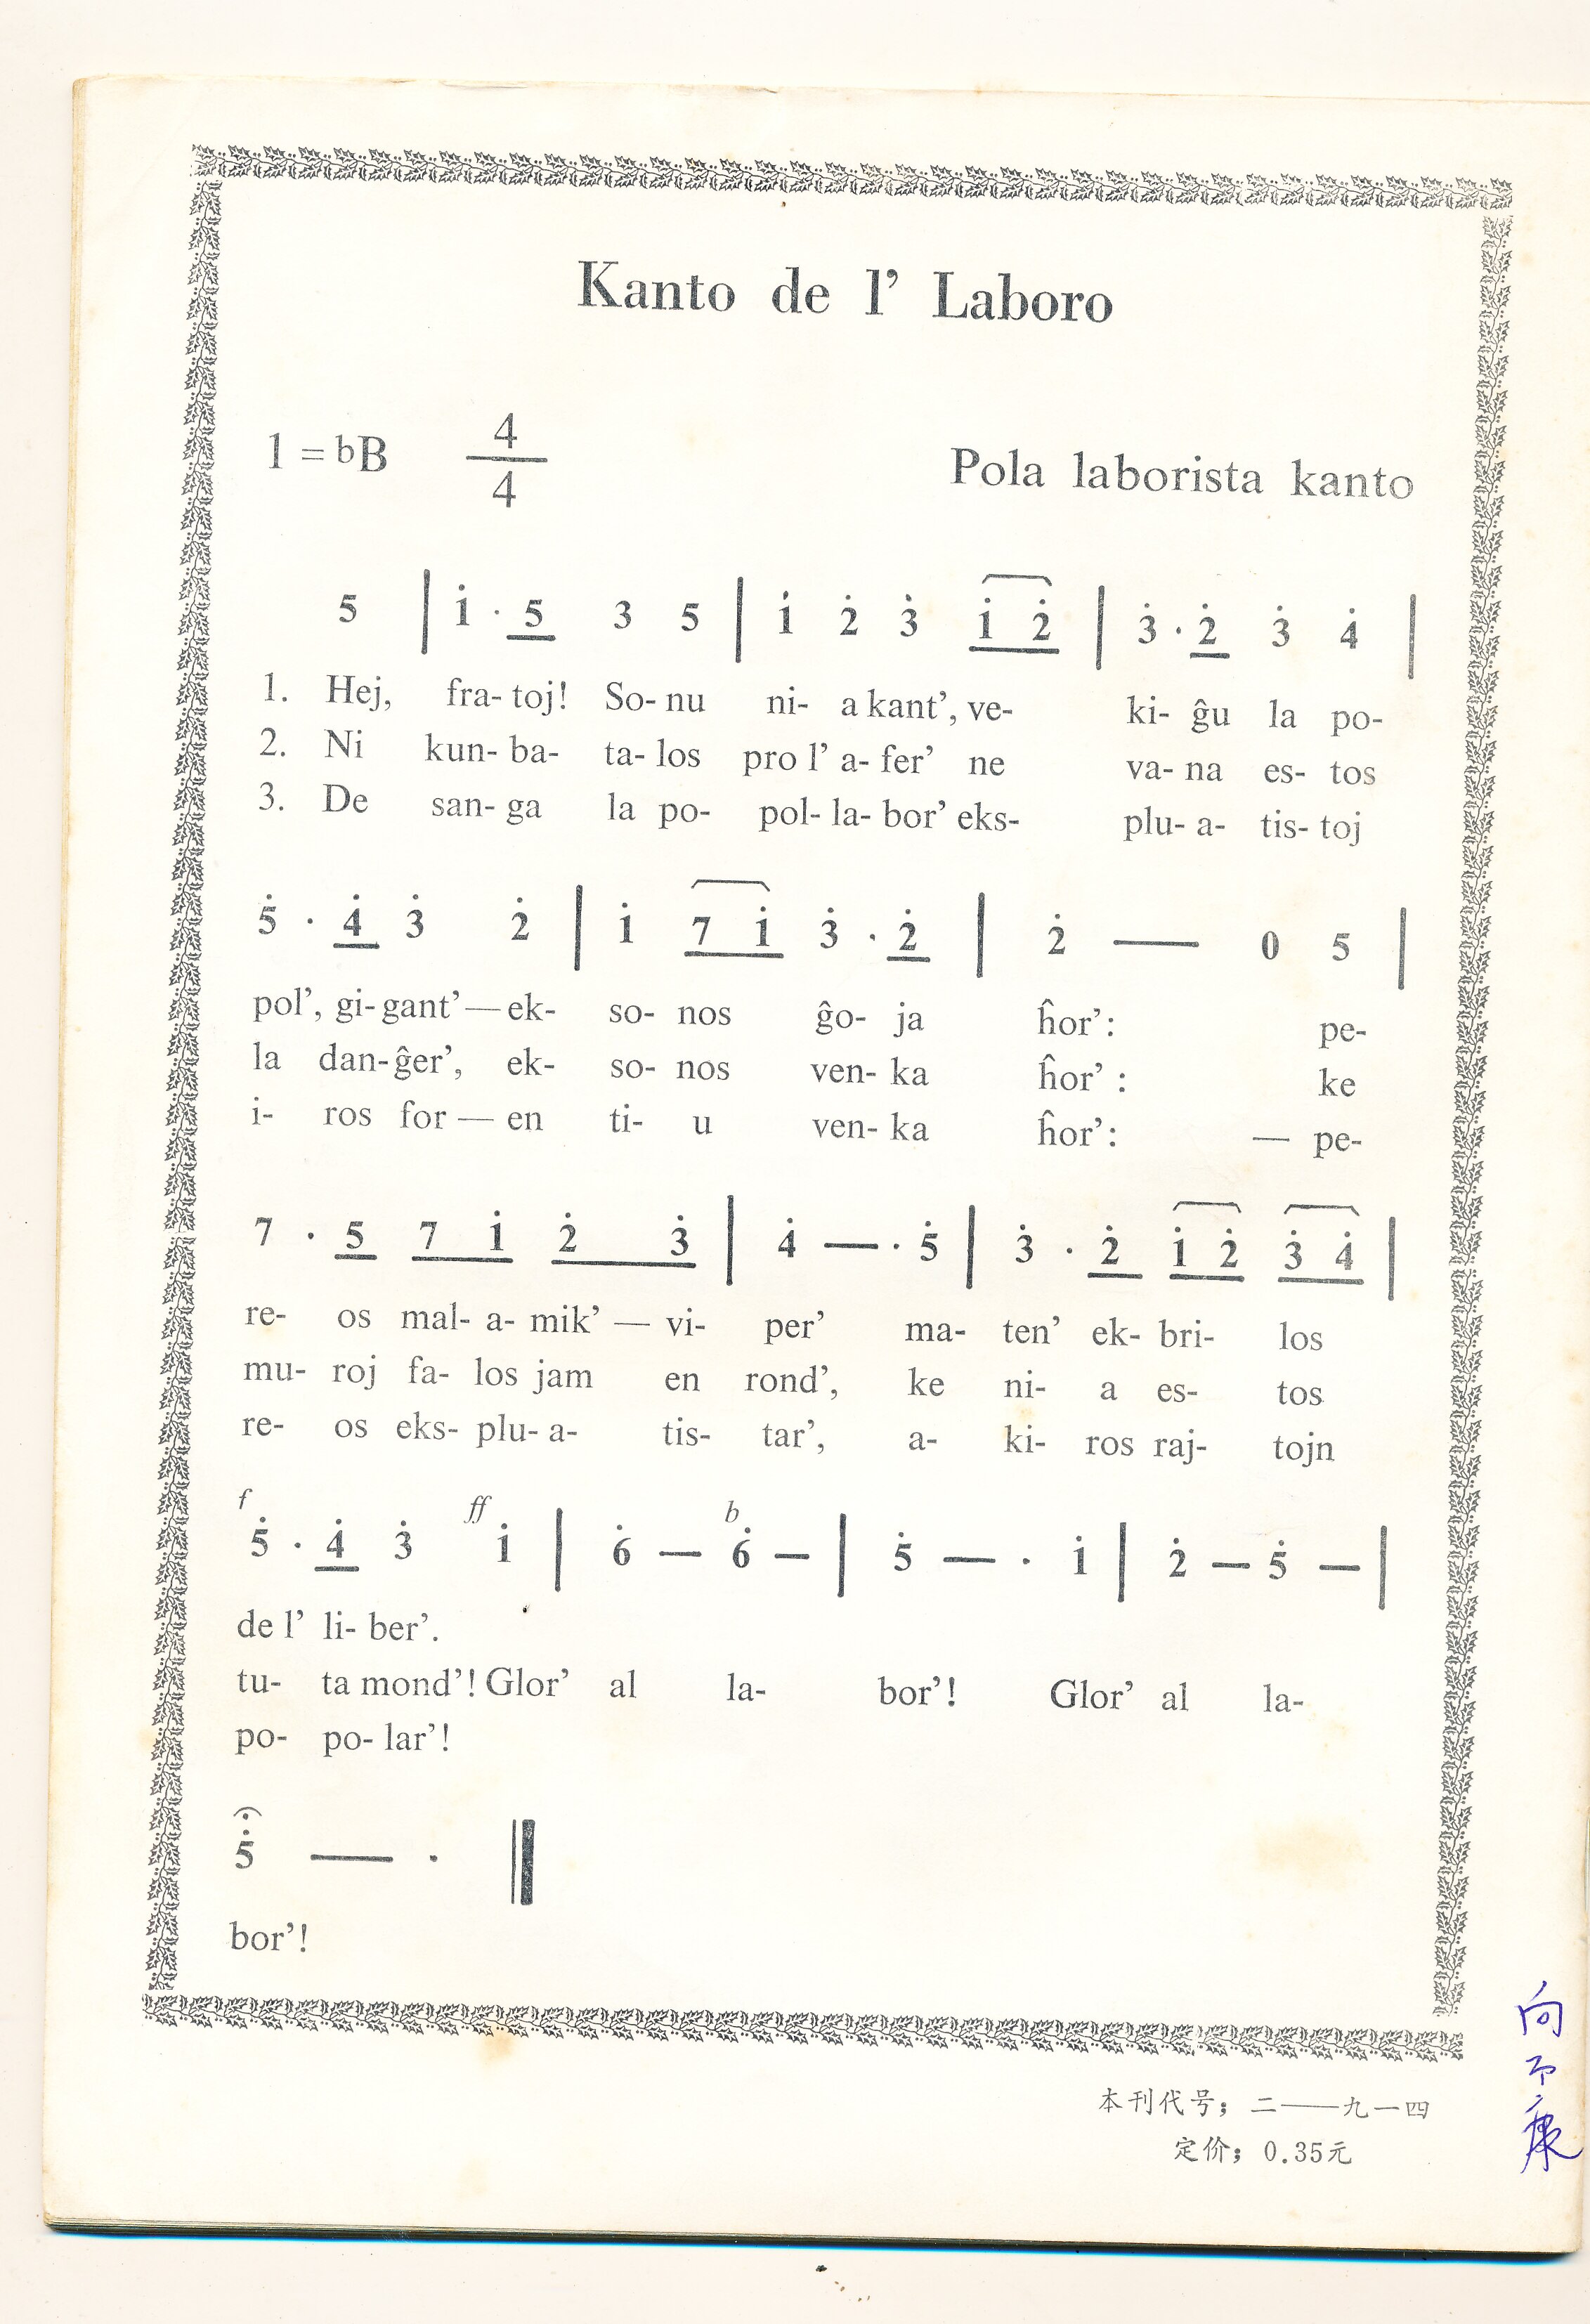 Kanto de l’ Laboro
1 = bB 4/4 Pola laborista kanto
5 | i̇ · 5 3 5 | i̇ 2̇ 3̇ i̇ 2̇ | 3̇ · 2̇ 3̇ 4̇ |
1. Hej, fra- toj! So- nu ni- a kant’, ve- ki- ĝu la po-
2. Ni kun- ba- ta- los pro l’ a- fer’ ne va- na es- tos
3. De san- ga la po- pol- la- bor’ eks- plu- a- tis- toj
5̇ · 4̇ 3̇ 2̇ | i̇ 7 i̇ 3̇ · 2̇ | 2̇ — 0 5 |
pol’, gi- gant’ — ek- so- nos ĝo- ja ĥor’: pe-
la dan- ĝer’, ek- so- nos ven- ka ĥor’ : ke
i- ros for — en ti- u ven- ka ĥor’: — pe-
7 · 5 7 i̇ 2̇ 3̇ | 4̇ — · 5̇ | 3̇ · 2̇ i̇ 2̇ 3̇ 4̇ |
re- os mal- a- mik’ — vi- per’ ma- ten’ ek- bri- los
mu- roj fa- los jam en rond’, ke ni- a es- tos
re- os eks- plu- a- tis- tar’, a- ki- ros raj- tojn
f ff b
5̇ · 4̇ 3̇ i̇ | 6̇ — 6̇ — | 5̇ — · i̇ | 2̇ — 5̇ — |
de l’ li- ber’.
tu- ta mond’! Glor’ al la- bor’! Glor’ al la-
po- po- lar’!
5̇ — ·
bor’!
本刊代号；二——九一四
定价；0.35元